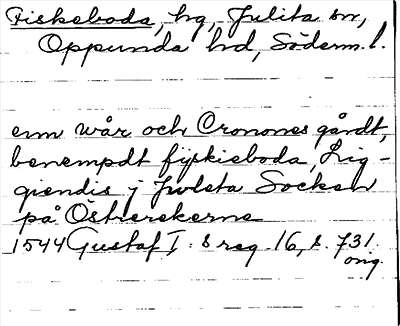 Fiskeboda, hg, Julita sn,
Oppunda hd, Söderm. l.
enn wår och Cronones gårdt,
benempdt fijskieboda, Lig-
giendis j Jwleta Socken
på Östrerekerne
1544 Gustaf I:s reg. 16, s. 731
orig.